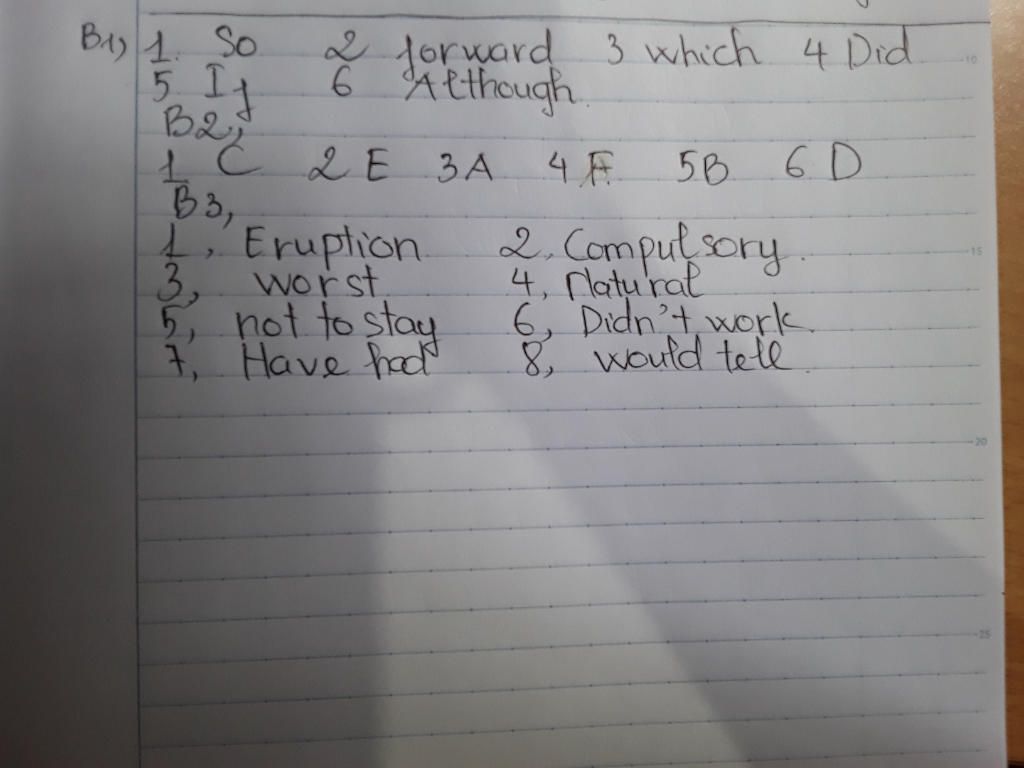 B1, 1. So 2 forward 3 which 4 Did
5 If 6 Although.
B2,
1 C 2 E 3 A 4 F. 5 B 6 D
B3,
1, Eruption 2, Compulsory.
3, worst 4, Natural
5, not to stay 6, Didn't work.
7, Have had 8, would tell.
10
15
20
25